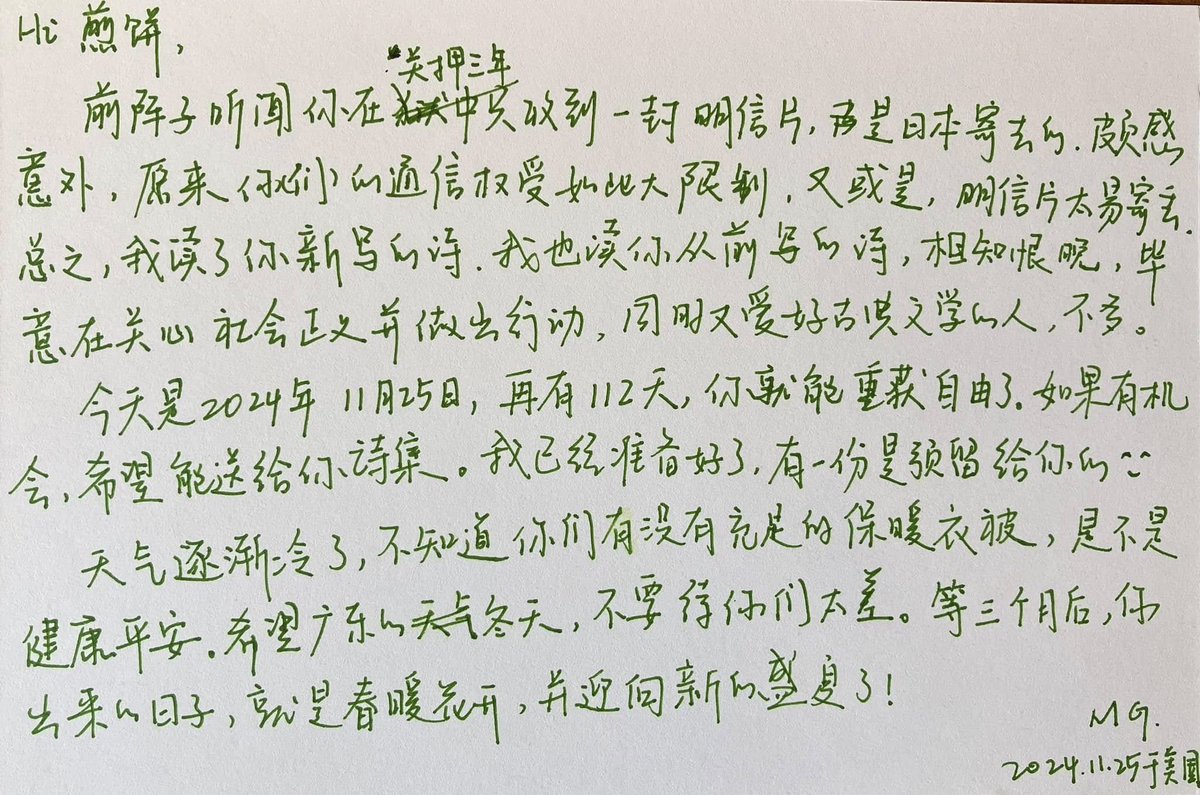 Hi 煎饼,
关押三年
前阵子听闻你在中只收到一封明信片, 还是日本寄去的. 颇感
意外, 原来你(们)的通信权受如此大限制. 又或是, 明信片太易寄丢.
总之, 我读了你新写的诗. 我也读你从前写的诗, 相知恨晚, 毕
意在关心社会正义并做出行动, 同时又爱好古典文学的人, 不多。
今天是2024年 11月25日, 再有112天, 你就能重获自由了. 如果有机
会, 希望能送给你詩集。我已经准备好了, 有一份是预留给你的
天气逐渐冷了, 不知道你们有没有充足的保暖衣被, 是不是
健康平安. 希望广东的冬天, 不要待你们太差。等三个月后, 你
出来的日子, 就是春暖花开, 并迎向新的盛夏了!
MG.
2024.11.25于美国